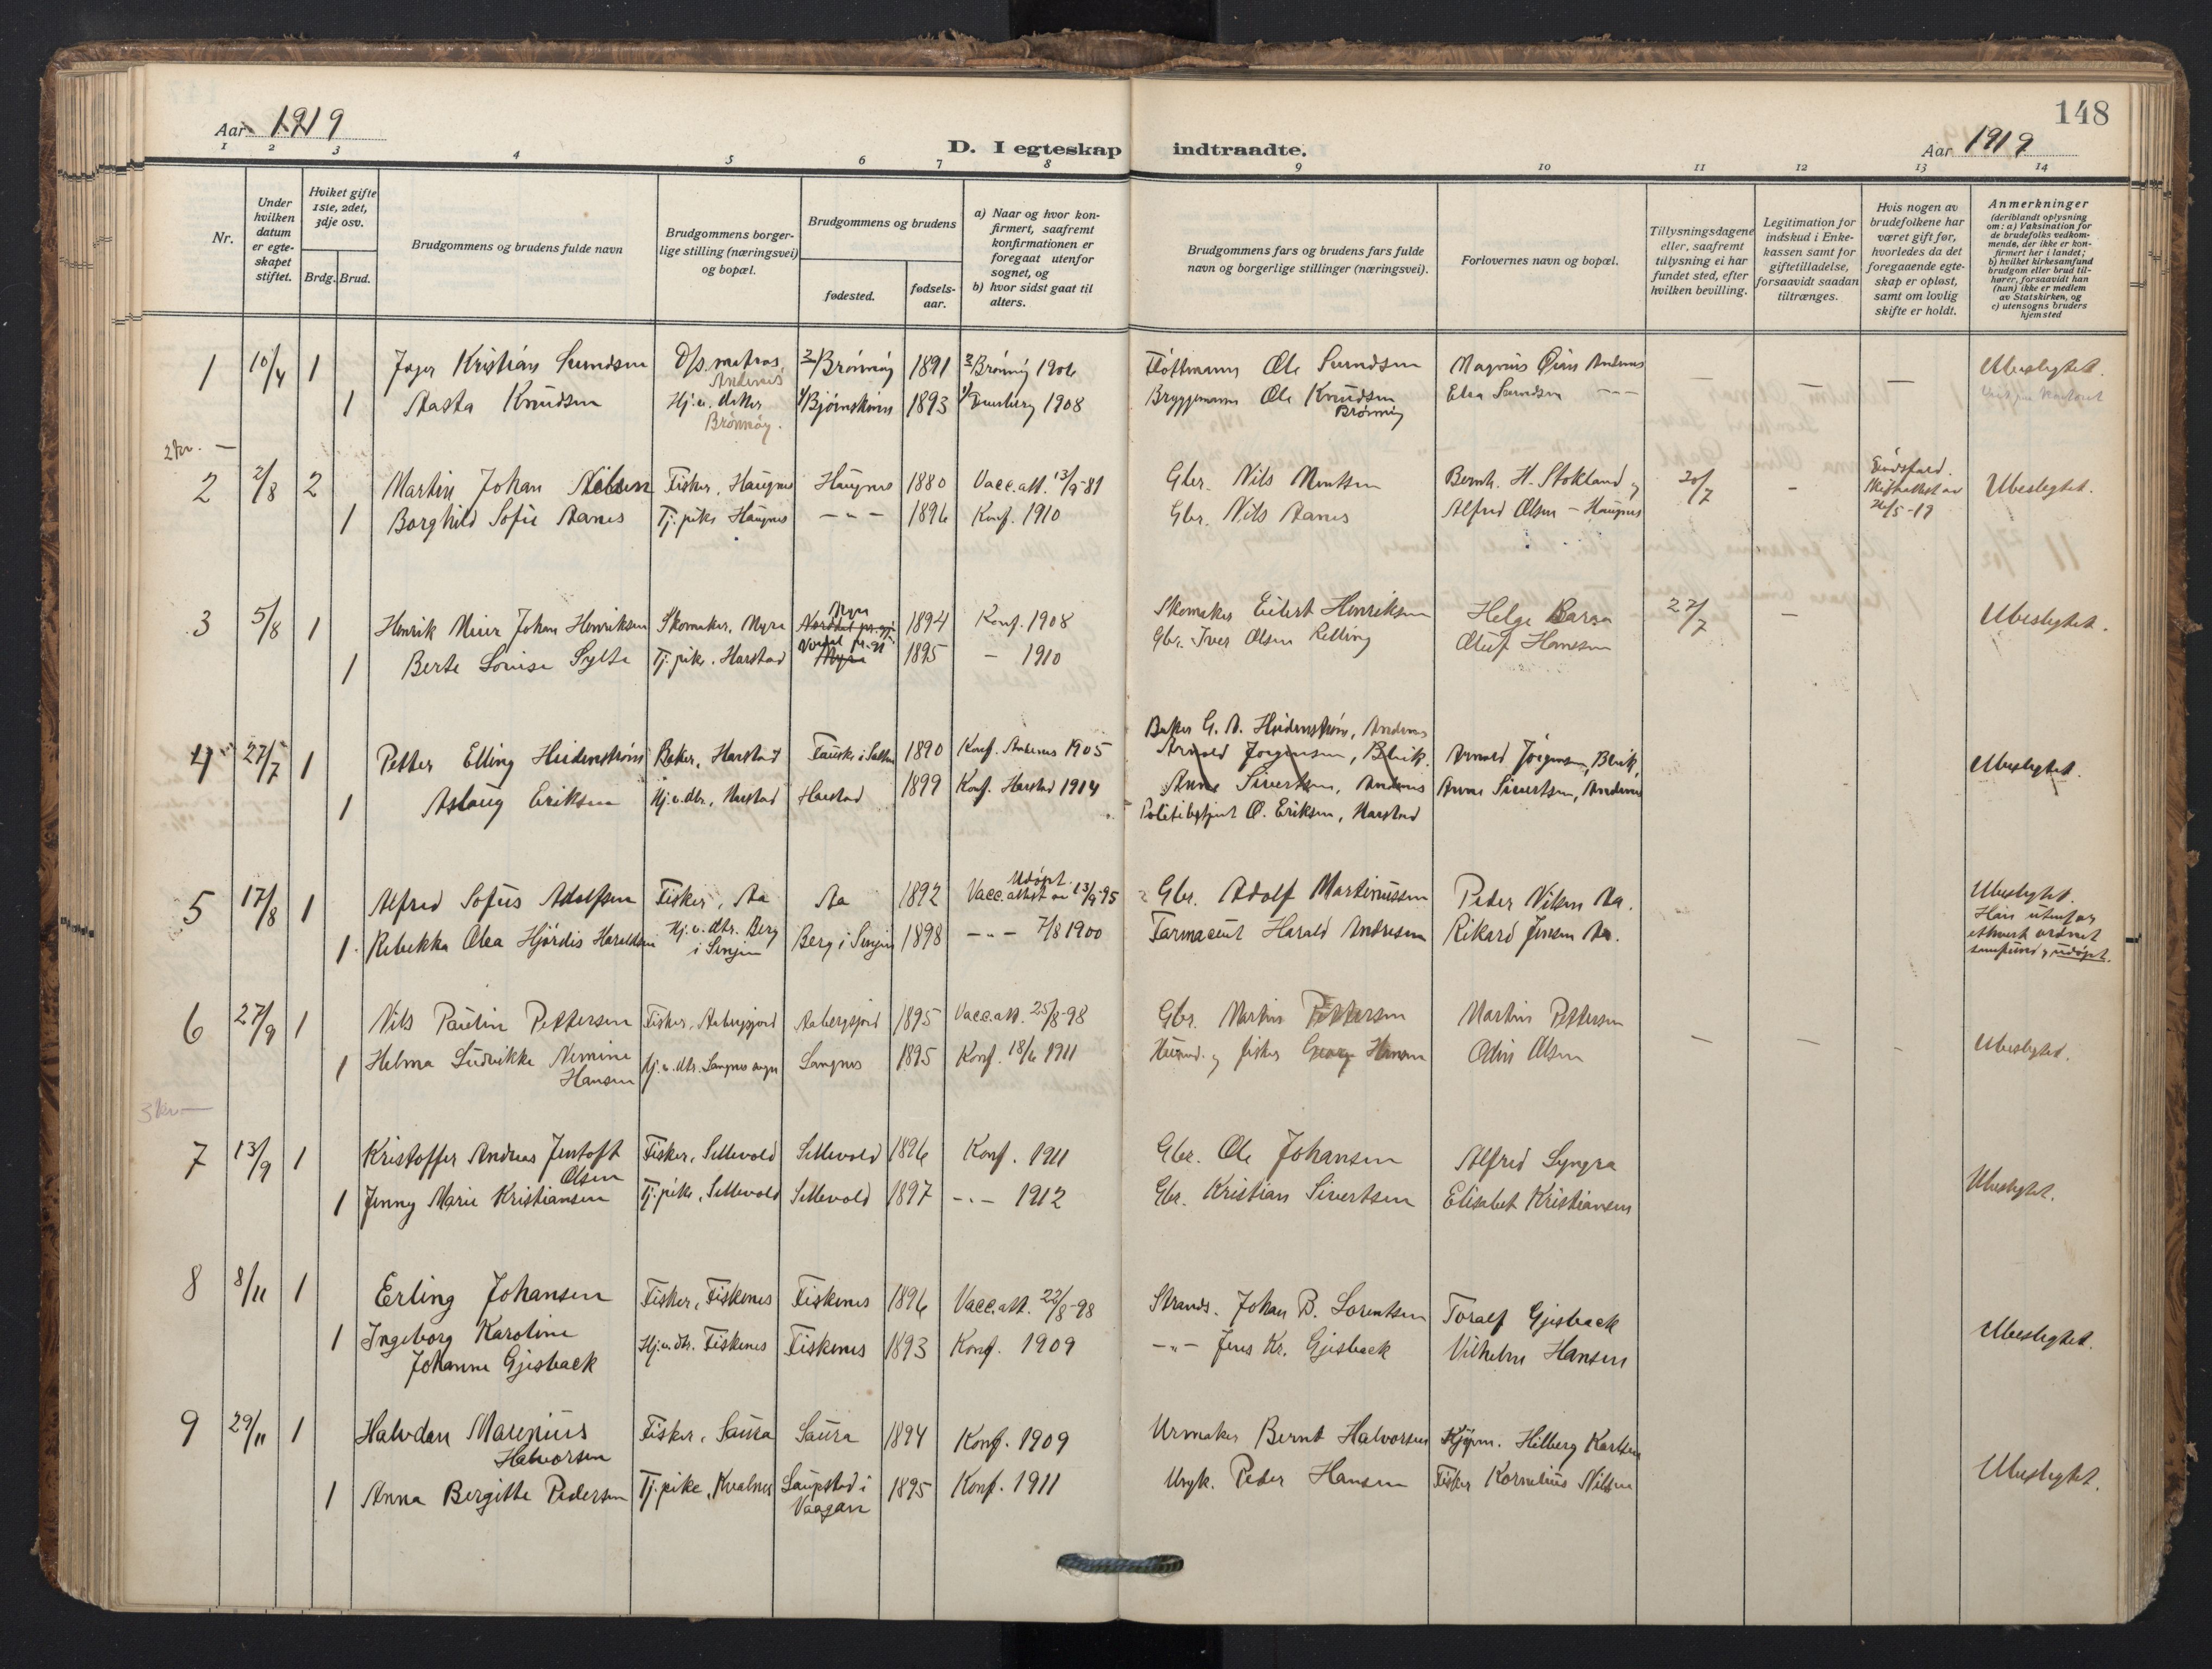 148
Aar 1919
Aar 1919
D. I egteskap indtraadte.
1 2 3 4 5 6 7 8 9 10 11 12 13 14
Nr.
Under hvilken datum er egteskapet stiftet.
Hviket gifte 1ste, 2det, 3dje osv.
Brdg. Brud.
Brudgommens og brudens fulde navn
Brudgommens borgerlige stilling (næringsvei) og bopæl.
Brudgommens og brudens
fødested.
fødselsaar.
a) Naar og hvor konfirmert, saafremt konfirmationen er foregaat utenfor sognet, og
b) hvor sidst gaat til alters.
Brudgommens fars og brudens fars fulde navn og borgerlige stillinger (næringsvei).
Forlovernes navn og bopæl.
Tillysningsdagene eller, saafremt tillysning ei har fundet sted, efter hvilken bevilling.
Legitimation for indskud i Enkekassen samt for giftetilladelse, forsaavidt saadan tiltrænges.
Hvis nogen av brudefolkene har været gift før, hvorledes da det foregaaende egteskap er opløst, samt om lovlig skifte er holdt.
Anmerkninger
(deriblandt oplysning om: a) Vaksination for de brudefolks vedkommende, der ikke er konfirmert her i landet;
b) hvilket kirkesamfund brudgom eller brud tilhører, forsaavidt han (hun) ikke er medlem av Statskirken, og
c) utensogns bruders hjemsted
1 10/4 1 Kristian Sundsen D/s. matros, Andenes Brønnøy 1891 Brønnøy 1906 Fløttmann Ole Sundsen Magnus Andenes — — — Ubeslegtet.
1 Aasta Knudsen Hj.v. datter Brønnøy. Bjørnskinn 1893 1908 Bryggemann Ole Knudsen Brønnøy Sundsen - - -
2 kr. —
2 2/8 2 Martin Johan Nilsen Fisker, Haugnes Haugnes 1880 Vacc.att. 13/9-81 Gbr. Nils Bernh. H. Stokland og 20/7 - 26/5-19 Ubeslegtet.
1 Borghild Sofie Aanes Tj.pike Haugnes - „ - 1896 Konf. 1910 Gbr. Nils Aanes Alfred Olsen - Haugnes
3 5/8 1 Henrik Meier Johan Henriksen Skomaker, Myre Myre 1894 Konf. 1908 Skomaker Eilert Henriksen Helge Barra 27/7 - Ubeslegtet.
1 Berte Louise Sylte Tj.pike, Harstad 1895 - 1910 Gbr. Iver Olsen Relling Oluf Hansen
4 27/7 1 Petter Elling Heidenstrøm Baker, Harstad Fauske i Salten 1890 Konf. Andenes 1905 Baker G. A. Heidenstrøm, Andenes
Arnold Jørgensen, Bleik. Arnold Jørgensen, Bleik, Ubeslegtet.
1 Aslaug Eriksen Hj.v.dtr., Harstad Harstad 1899 Konf. Harstad 1914 Anne Sivertsen, Andenes Anne Sivertsen, Andenes
Politibetjent O. Eriksen, Harstad
5 17/8 1 Alfred Sofus Adolfsen Fisker, Aa Aa 1892 Udøpt. Vacc.attest av 13/9-95 Gbr. Adolf Martinussen Peder Nilsen Aa. Ubeslegtet.
1 Rebekka Olea Hjørdis Haraldsen Hj.v.dtr. Berg i Senjen Berg i Senjen 1898 - „ - 7/8 1900 Farmaceut Harald Andresen Rikard Jensen Aa. Han utenfor
ethvert ordnet
samfund, udøpt.
6 27/9 1 Nils Paulin Pettersen Fisker, Aabergsjord Aabergsjord 1895 Vacc.att. 25/8-98 Gbr. Martin Pettersen Martin Pettersen — — — Ubeslegtet.
1 Helma Ludvikke Nimine Hansen Hj.v.dtr. Langnes sogn Langnes 1895 Konf. 18/6 1911 Husmd. og fisker Georg Hansen Odin Olsen
3 kr. —
7 13/9 1 Kristoffer Andreas Jentoft Olsen Fisker, Sellevold Sellevold 1896 Konf. 1911 Gbr. Ole Johansen Alfred Lyngra Ubeslegtet.
1 Jenny Marie Kristiansen Tj.pike, Sellevold Sellevold 1897 - „ - 1912 Gbr. Kristian Sivertsen Elisabet Kristiansen
8 8/11 1 Erling Johansen Fisker, Fiskenes Fiskenes 1896 Vacc.att. 22/8-98 Strands. Johan B. Lorentsen Toralf Gjisback Ubeslegtet.
1 Ingeborg Karoline Johanne Gjisback Hj.v.dtr. Fiskenes Fiskenes 1893 Konf. 1909 - „ - Jens Kr. Gjisback Vilhelm Hansen
9 29/11 1 Halvdan Marenius Halvorsen Fisker, Saura Saura 1894 Konf. 1909 Urmaker Bernt Halvorsen Kjøpm. Hilberg Karlsen Ubeslegtet.
1 Anna Bergitte Pedersen Tj.pike, Kvalnes Laupstad i Vaagan 1895 Konf. 1911 Ungk. Peder Hansen Fisker Kornelius Nilsen